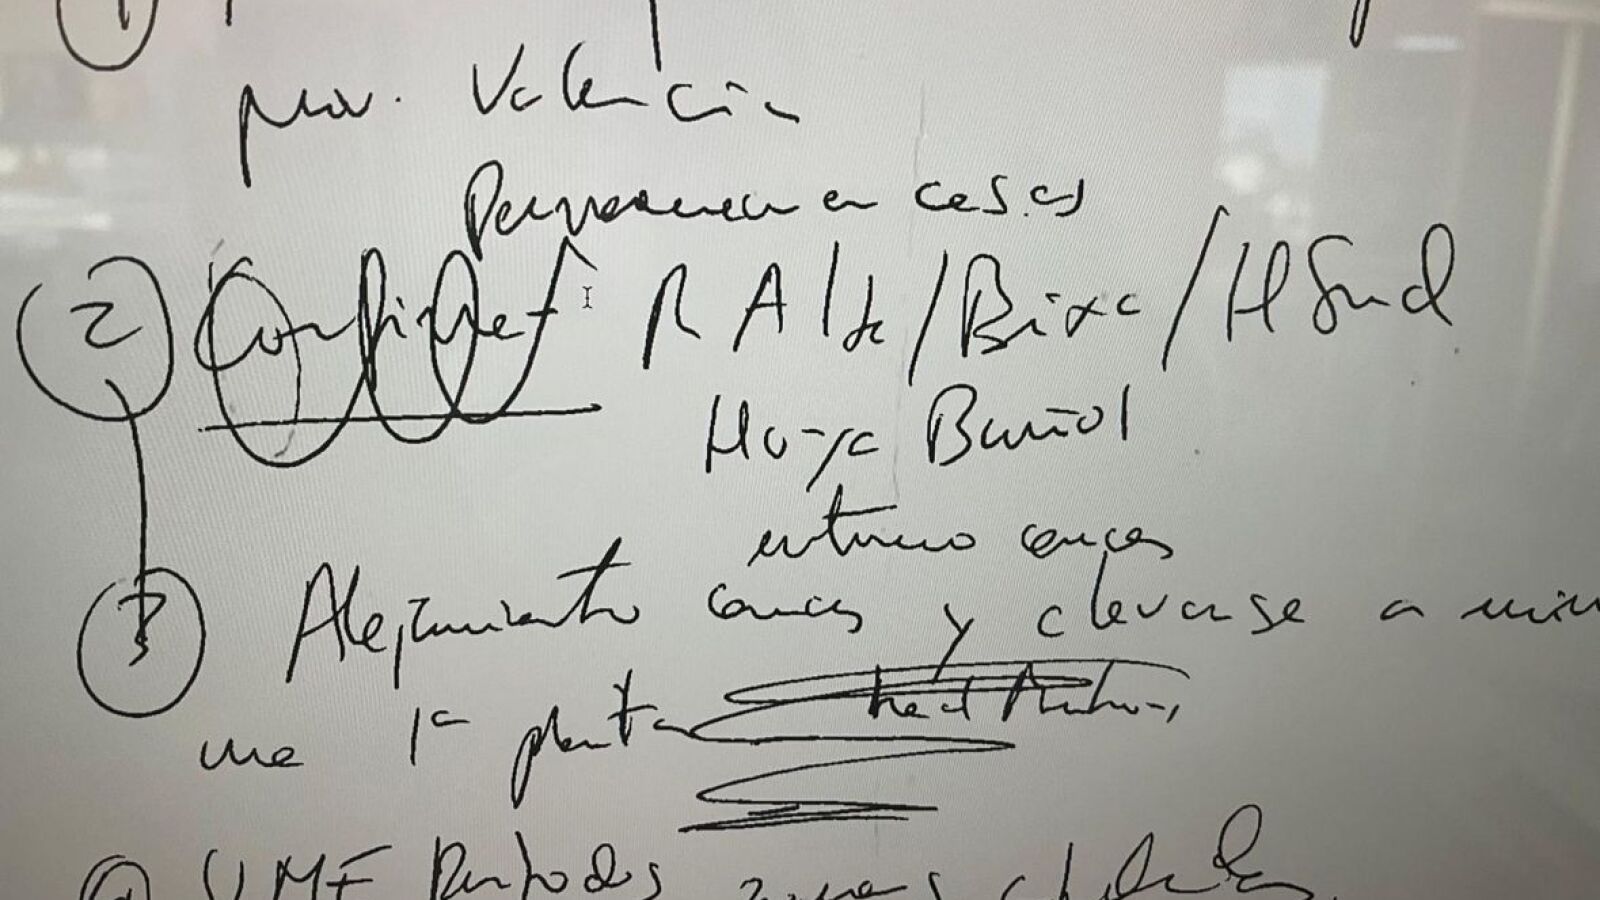 1
prov. Valencia
Permanencia en casas
2 Confinet R Alta/Baixa/H Sud
Hoya Buñol
entorno cauces
3 Alejamiento cauces y elevarse a
una 1ª planta
UME Rento dos zonas